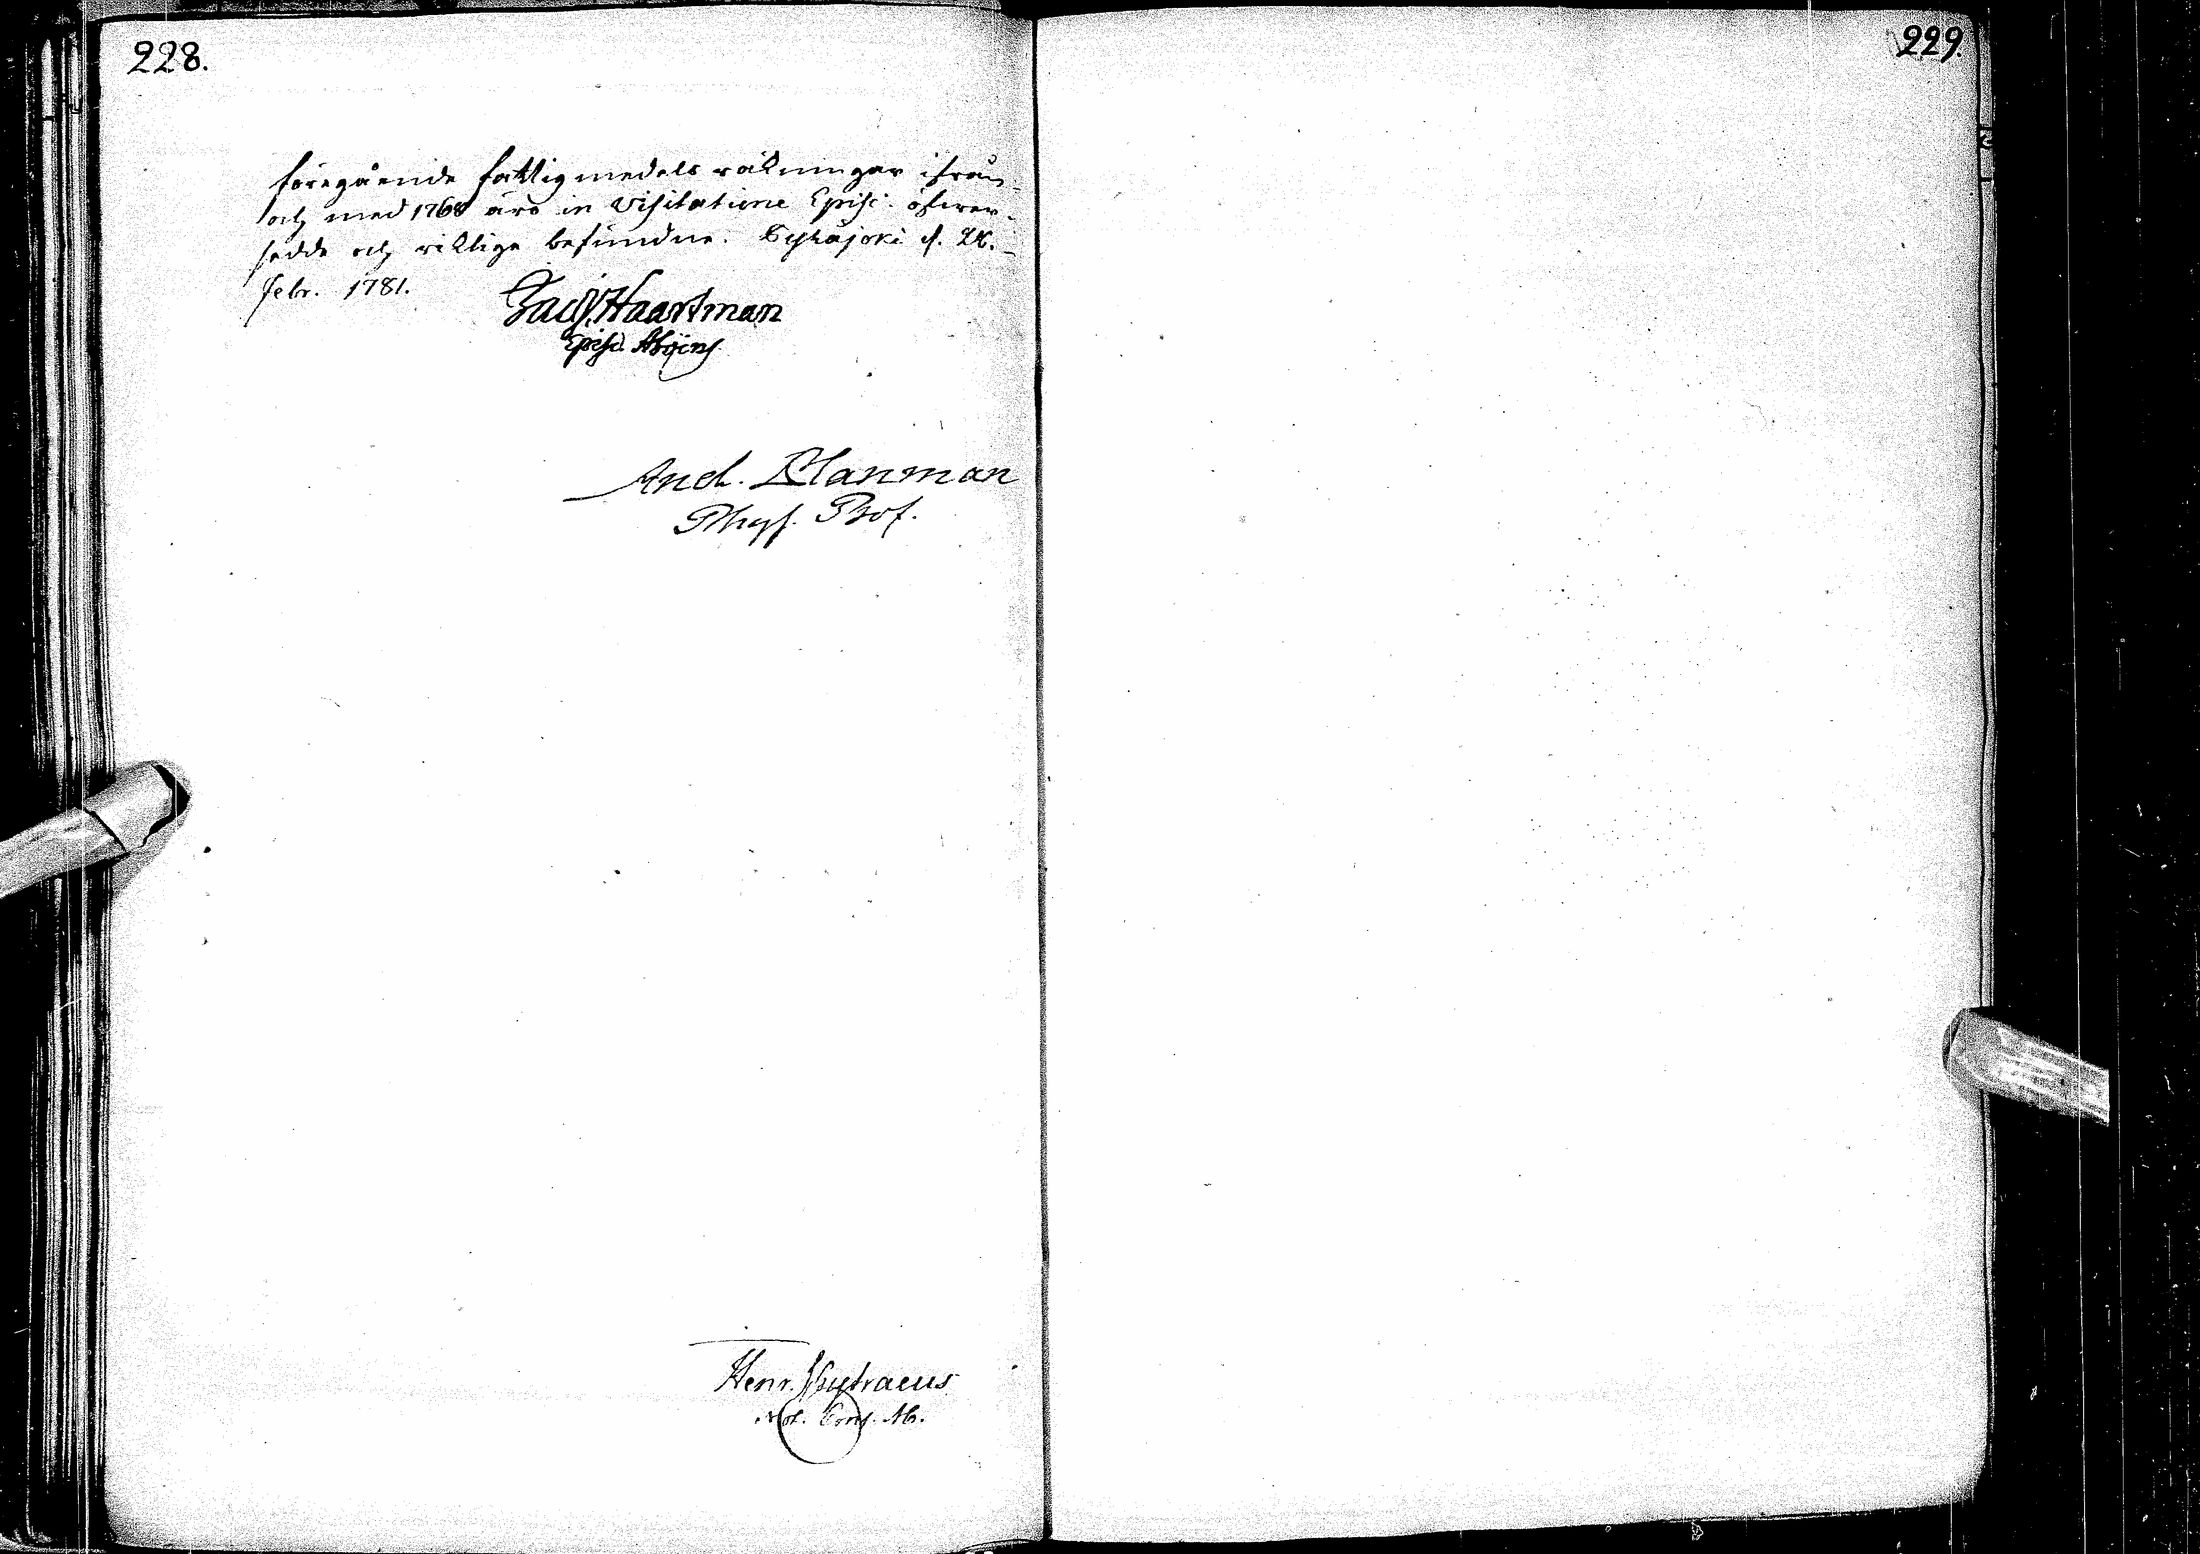 228.
föregående fattigmedels räkningar ifrån
och med 1768 äro in Visitatione Episc. öfwer-
sedde och riktige befundne. Pyhäjoki d.
Febr. 1781.
Jac. Haartman
Episc. Aboens
And. Planman
Phys. Prof.
Henr.
Not. Cons. Ab.
229.